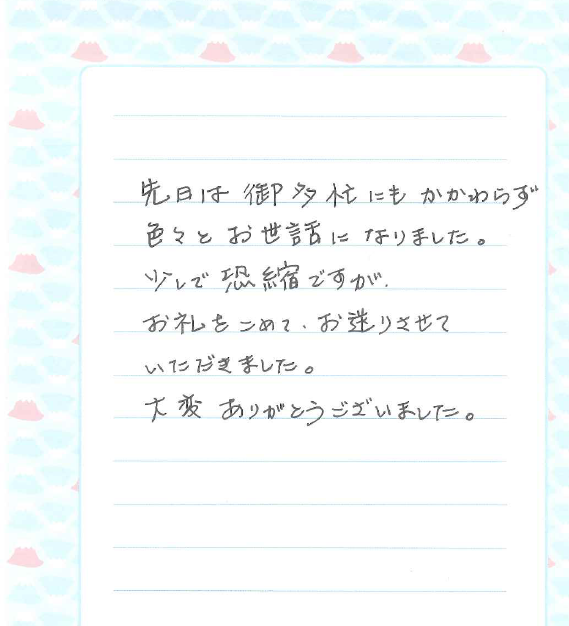 先日は 御多忙にも かかわらず
色々と お世話に なりました。
少しで 恐縮ですが、
お礼をこめて、お送りさせて
いただきました。
大変 ありがとうございました。